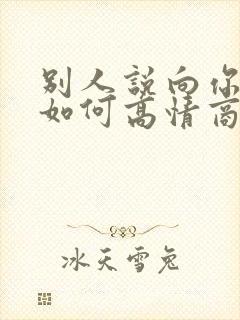 别人説向你
如何高情商
冰天雪兔